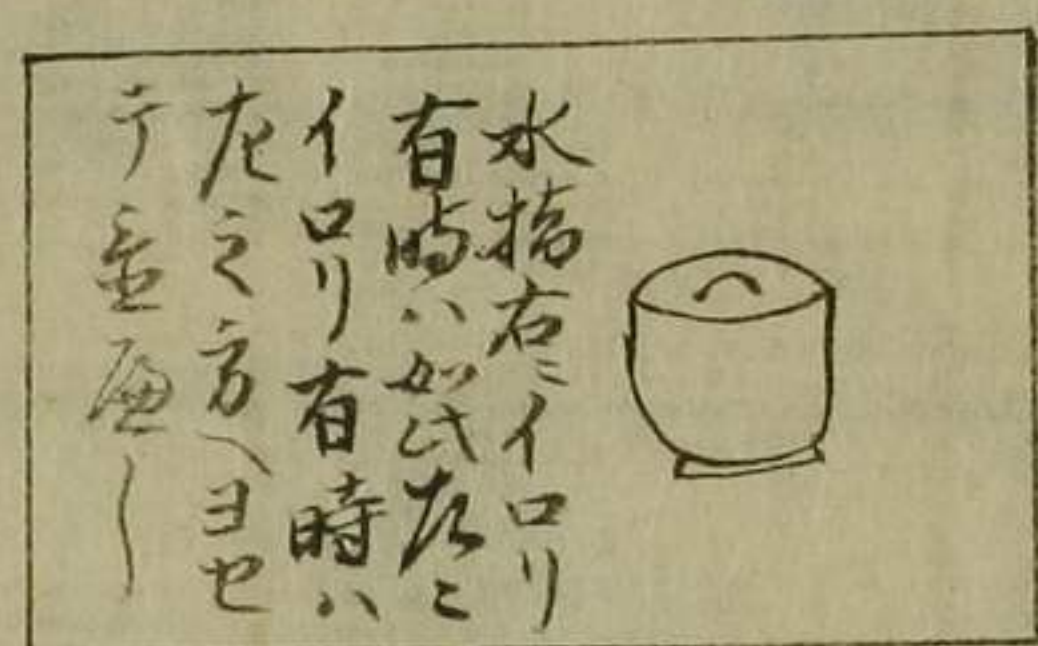 水指右ニイロリ
有時ハ如此左ニ
イロリ有時ハ
左之方ヘヨセ
テ置へし